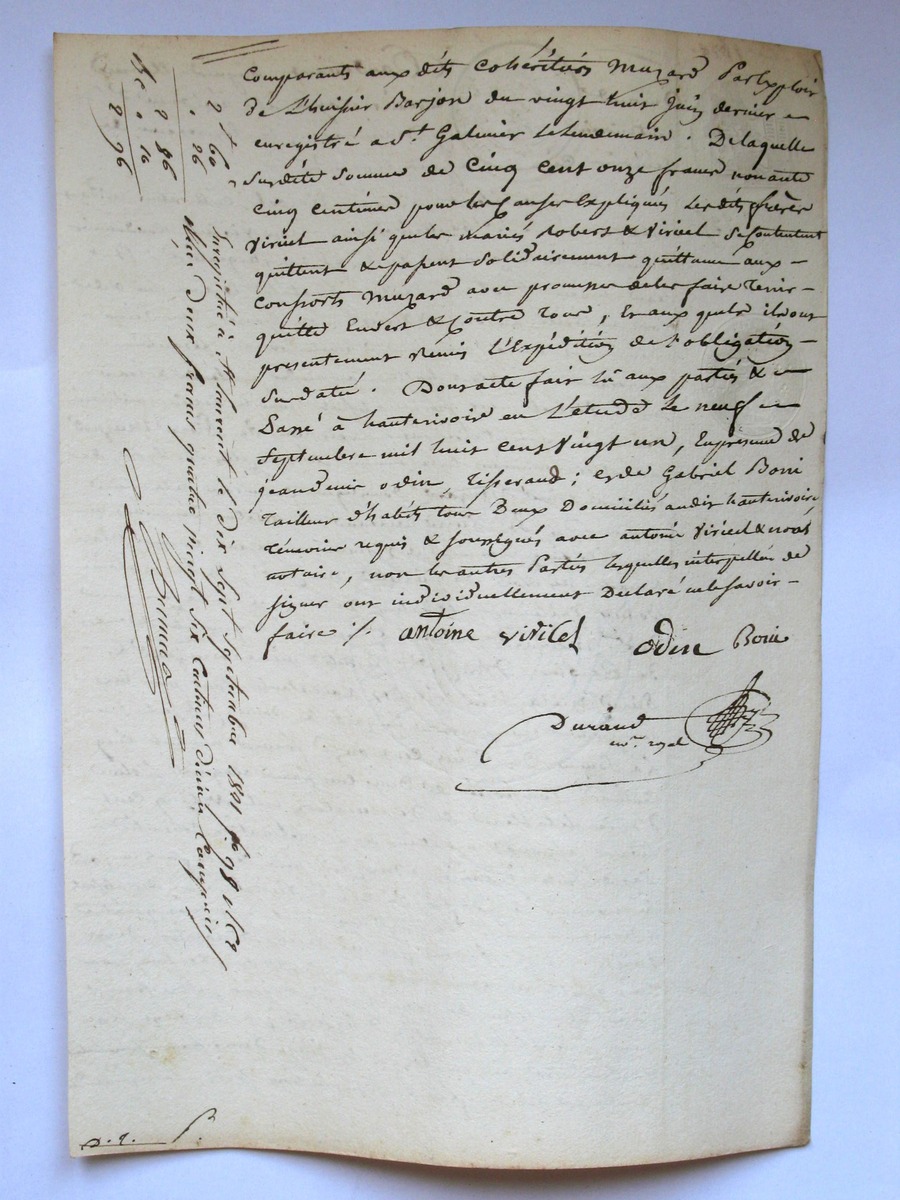 Comparants aux dits cohéritiers Muzard Par Exploit
de L'huissier Barjon du vingt huit Juin dernier
enregistré a St Galmier Le Lendemain. De laquelle
Susdite Somme de Cinq Cent onze francs nonante
Cinq Centimes pour les Causes Expliqués Les dits frères
Viricel ainsi que les mariés Robert & Viricel Se Contentent
quittent & passent Solidairement quittance aux
Consorts Muzard avec promesse de les faire Tenir
quitte Envers & Contre Tous, Et aux quels ils ont
presentement Remis L'Expédition de l'obligation
Susdaté. Dont acte fait lu aux partiés &
Passé à hauterivoire en L'etude Le neuf
Septembre mil huit Cent Vingt un, En présence de
jean denis odin, Tisserand; Et de Gabriel Boni
Tailleur d'habits tous Deux Domiciliés audit hauterivoire
Témoins requis & soussignés avec antoine Viricel & nous
notaire, non les autres Parties lesquelles interpellés de
signer ont individuellement Déclaré ne le Savoir
faire ./.
antoine viricel
odin
Boni
Durand
nore. royal
Enregistré à St Laurent le dix Sept Septembre 1821 fo 98
Reçu deux francs quatre vingt Six Centimes décime Compris
2 f 60
. 26
2. 86
. 10
2. 96
D. q.